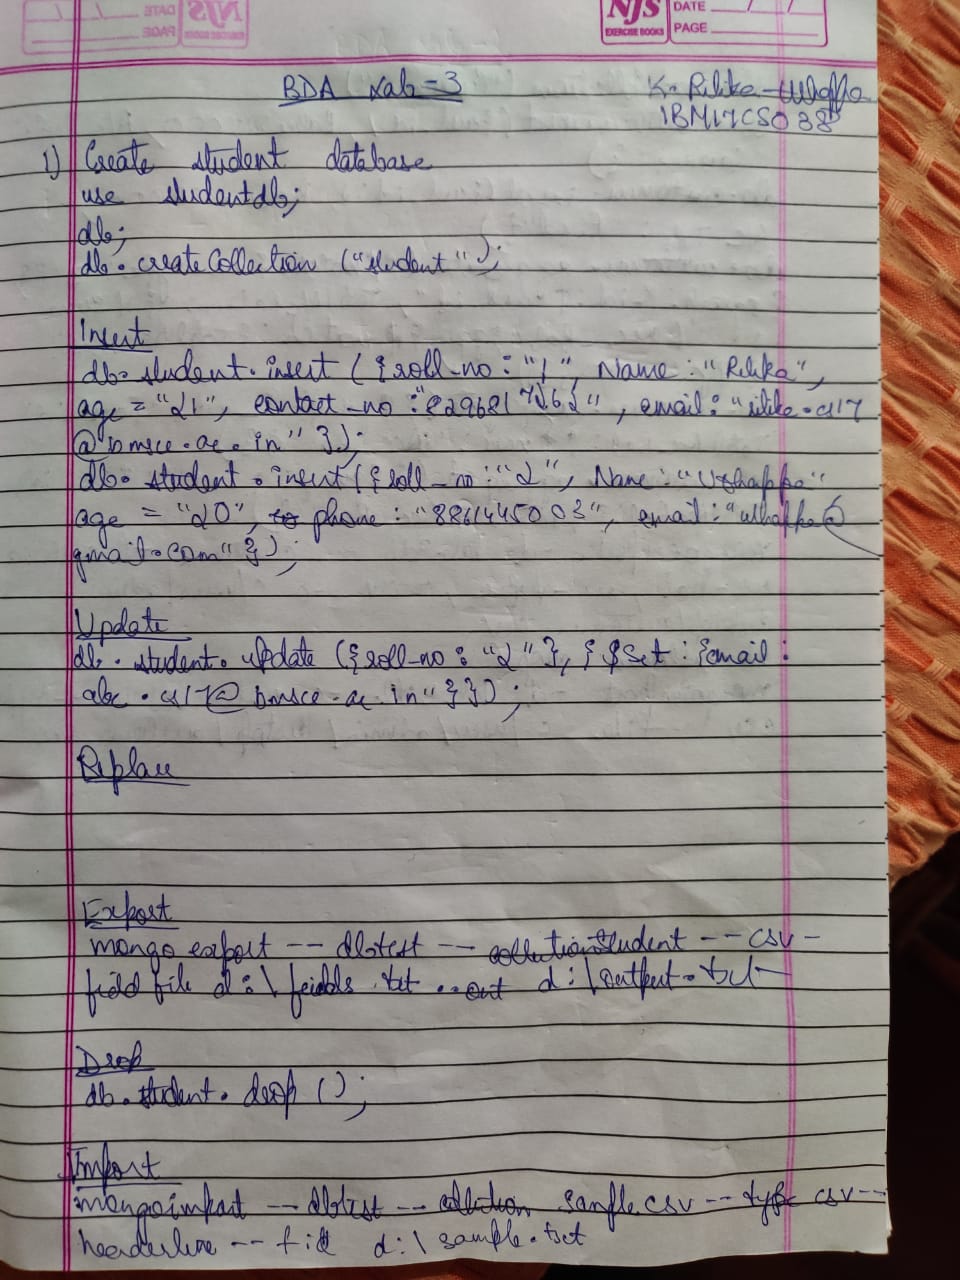 NJS
EXERCISE BOOKS
DATE / /
PAGE
BDA Lab-3
K. Ritika Uthappa
1BM17CS038
1) Create student database
use studentdb;
db;
db.createCollection ("student");
Insert
db.student.insert ({roll_no : "1", Name : "Ritika",
age = "21", contact_no : , email :
@bmsce.ac.in" });
db. student . insert ({roll_no : "2", Name : "Uthappa"
age = "20", phone : "8861445003", email : "uthappa@
gmail.com" });
Update
db. student. update ({roll_no : "2"}, {$set : {email :
abc.cs17@bmsce.ac.in" }});
Replace
Export
mongo export -- dbtest -- collectionstudent -- csv -
field file d:\ .txt ..out d:\output.txt
Drop
db.student.drop ();
Import
mongoimport -- dbtest -- collection sample.csv -- type csv --
headerline -- d:\ sample.txt